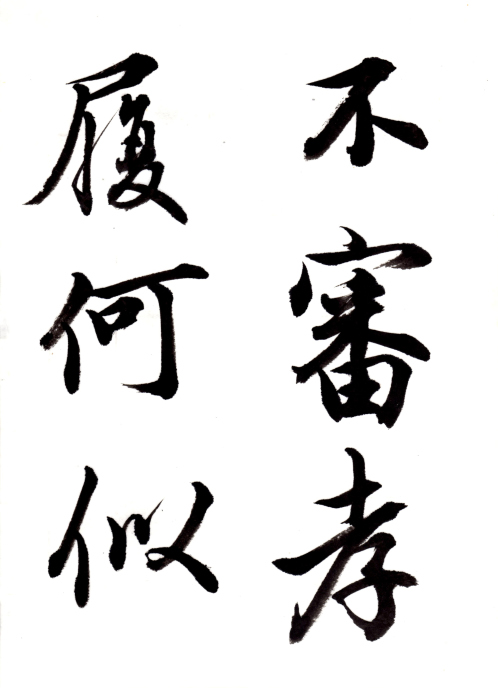 不審孝
履何似